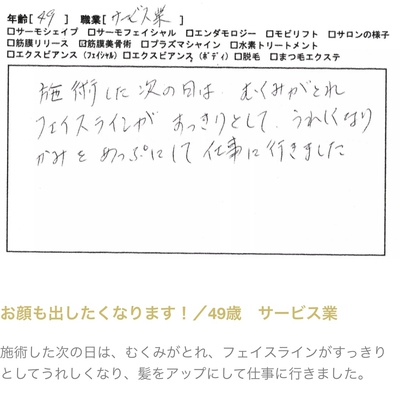 年齢[ 49 ] 職業[ サービス業 ]
□サーモシェイプ □サーモフェイシャル □エンダモロジー □モビリフト □サロンの様子
□筋膜リリース ☑筋膜美骨術 □プラズマシャイン □水素トリートメント
□エクスピアンス(フェイシャル) □エクスピアンス(ボディ) □脱毛 □まつ毛エクステ
施術した次の日は、むくみがとれ
フェイスラインが すっきりとして、うれしくなり
かみを あっぷにして 仕事に行きました
お顔も出したくなります！／49歳 サービス業
施術した次の日は、むくみがとれ、フェイスラインがすっきり
としてうれしくなり、髪をアップにして仕事に行きました。